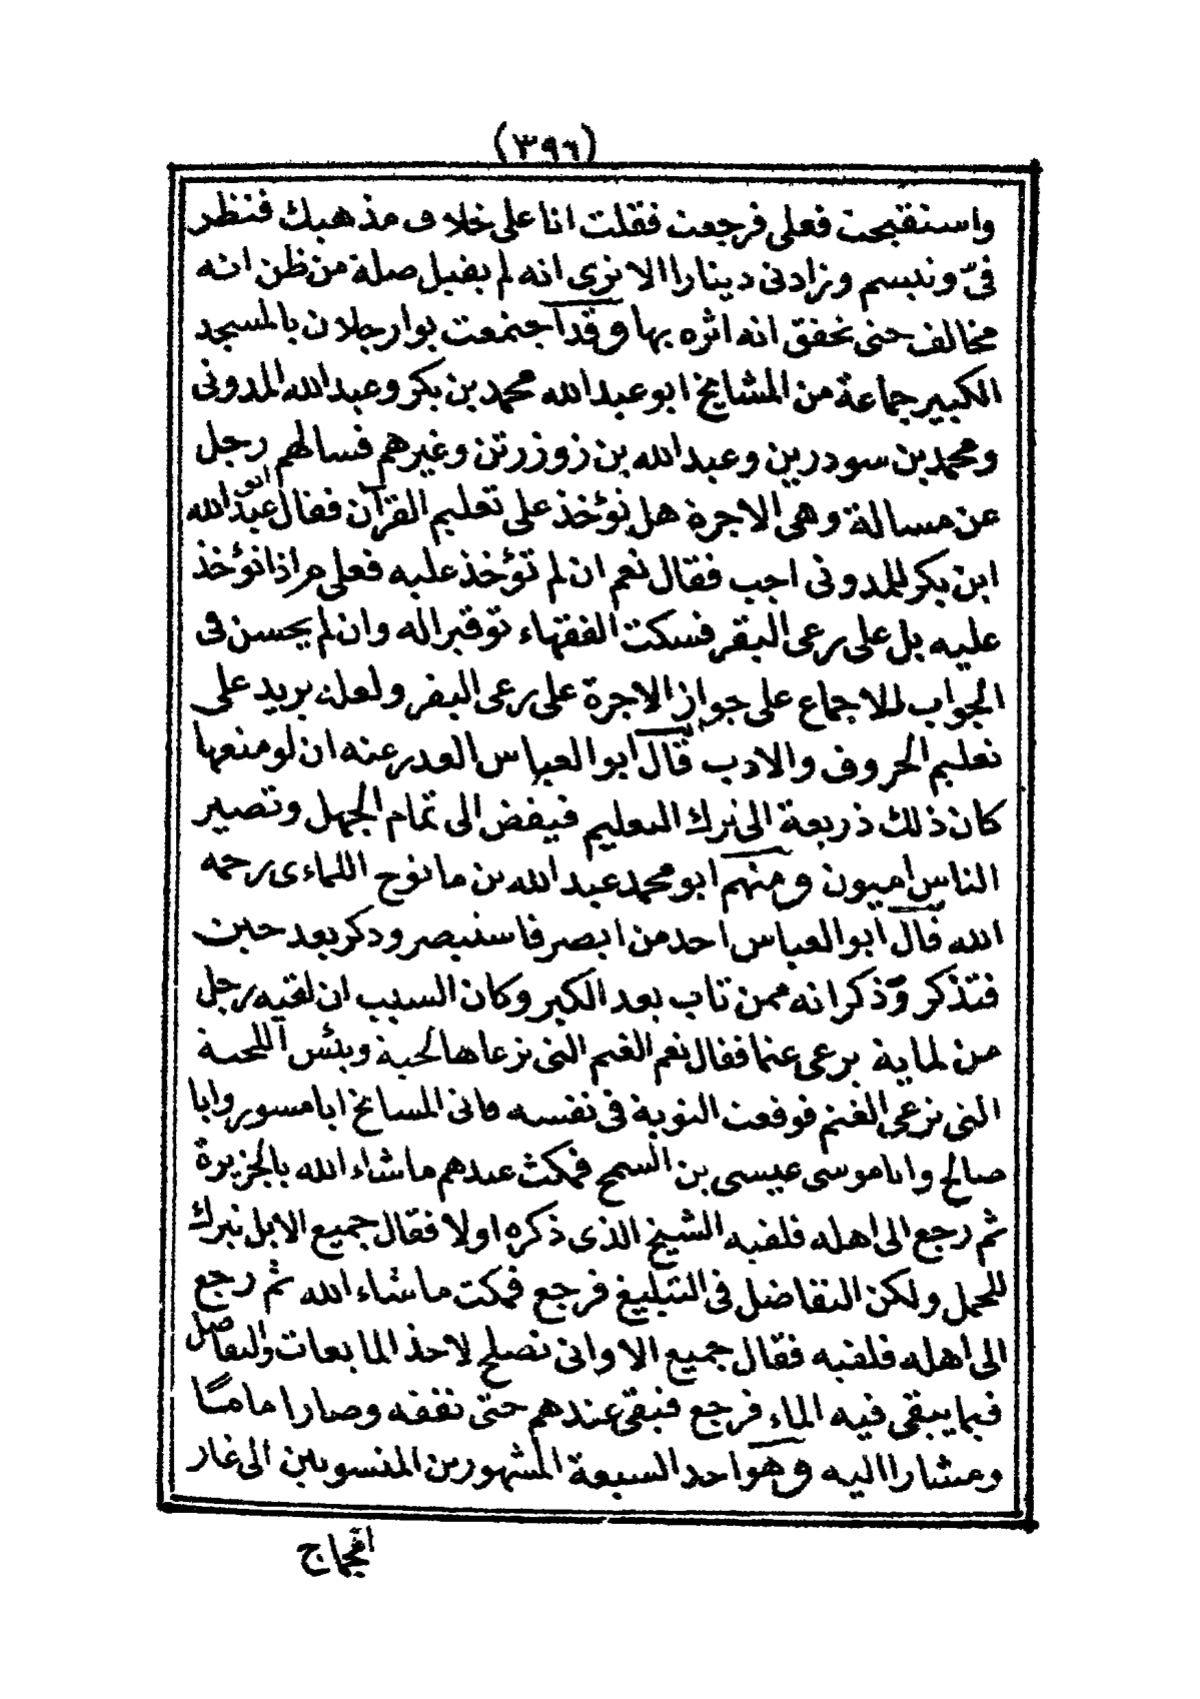 (٣٩٦)
واستقبحت فعلى فرجعت فقلت انا على خلاف مذهبك فنظر
فىّ وتبسم وزادنى دينارا الا نرى انه لم يقبل صلة من ظن انه
مخالف حتى تحقق انه اثره بها وقد اجتمعت بوارجلان بالمسجد
الكبير جماعة من المشايخ ابو عبد الله محمد بن بكر وعبد الله المدونى
ومحمد بن سودرين وعبد الله بن زوزرتن وغيرهم فسالهم رجل
عن مسالة وهى الاجرة هل تؤخذ على تعليم القرآن فقال ابو عبد الله
ابن بكر للمدونى اجب فقال نعم ان لم تؤخذ عليه فعلى م اذا تؤخذ
عليه بل على رعى البقر فسكت الفقهاء توقيرا له وان لم يحسن فى
الجواب للاجماع على جواز الاجرة على رعى البقر ولعله يريد على
تعليم الحروف والادب قال ابو العباس العذر عنه ان لو منعها
كان ذلك ذريعة الى ترك التعليم فيفض الى تمام الجهل وتصير
الناس اميون ومنهم ابو محمد عبد الله بن مانوج اللماءى رحمه
الله قال ابو العباس احد من ابصر فاستبصر وذكر بعد حين
فتذكر وذكر انه ممن تاب بعد الكبر وكان السبب ان لقيه رجل
من لماية يرعى غنما فقال نعم الغنم التى ترعاها لحية وبئس اللحية
التى ترعى الغنم فوقعت التوبة فى نفسه فاتى المسايخ ابا مسور وابا
صالح وابا موسى عيسى بن السمح فمكث عندهم ماشاء الله بالجزيرة
ثم رجع الى اهله فلقيه الشيخ الذى ذكره اولا فقال جميع الابل تبرك
للحمل ولكن التفاضل فى التبليغ فرجع فمكث ماشاء الله ثم رجع
الى اهله فلقيه فقال جميع الاوانى تصلح لاخذ المايعات والتفاضل
فيما يبقى فيه الماء فرجع فبقى عندهم حتى تفقه وصار اماما
ومشارا اليه وهو احد السبعة المشهورين المنسوبين الى غار
امجماج